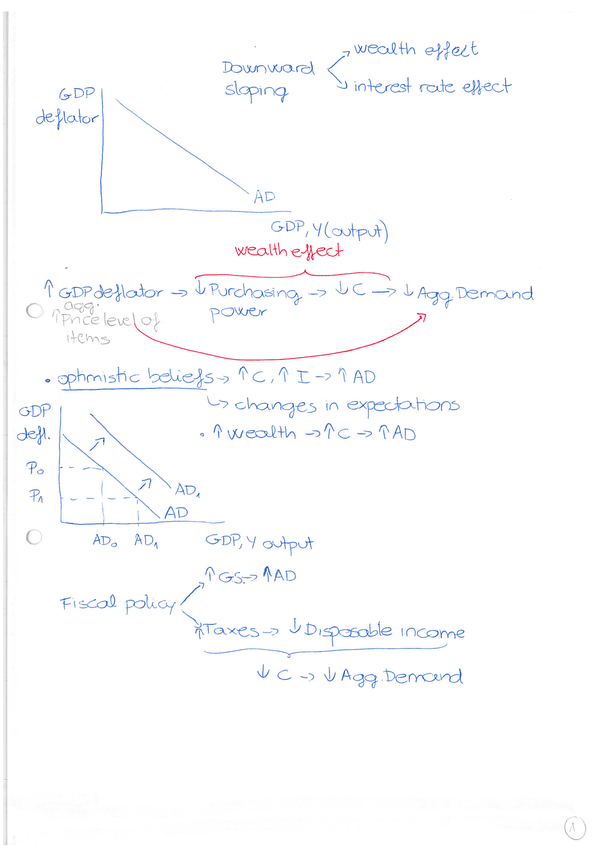 Downward sloping → wealth effect
↘ interest rate effect
GDP deflator
AD
GDP, Y (output)
wealth effect
↑ GDP deflator → ↓ Purchasing power → ↓ C → ↓ Agg. Demand
agg.
↑ Price level of
items
• ophmistic beliefs → ↑ C, ↑ I → ↑ AD
↳ changes in expectations
• ↑ wealth → ↑ C → ↑ AD
GDP
defl.
P₀
P₁
AD₁
AD
AD₀ AD₁ GDP, Y output
Fiscal policy
↑ GS → ↑ AD
↑ Taxes → ↓ Disposable income
↓ C → ↓ Agg. Demand
1